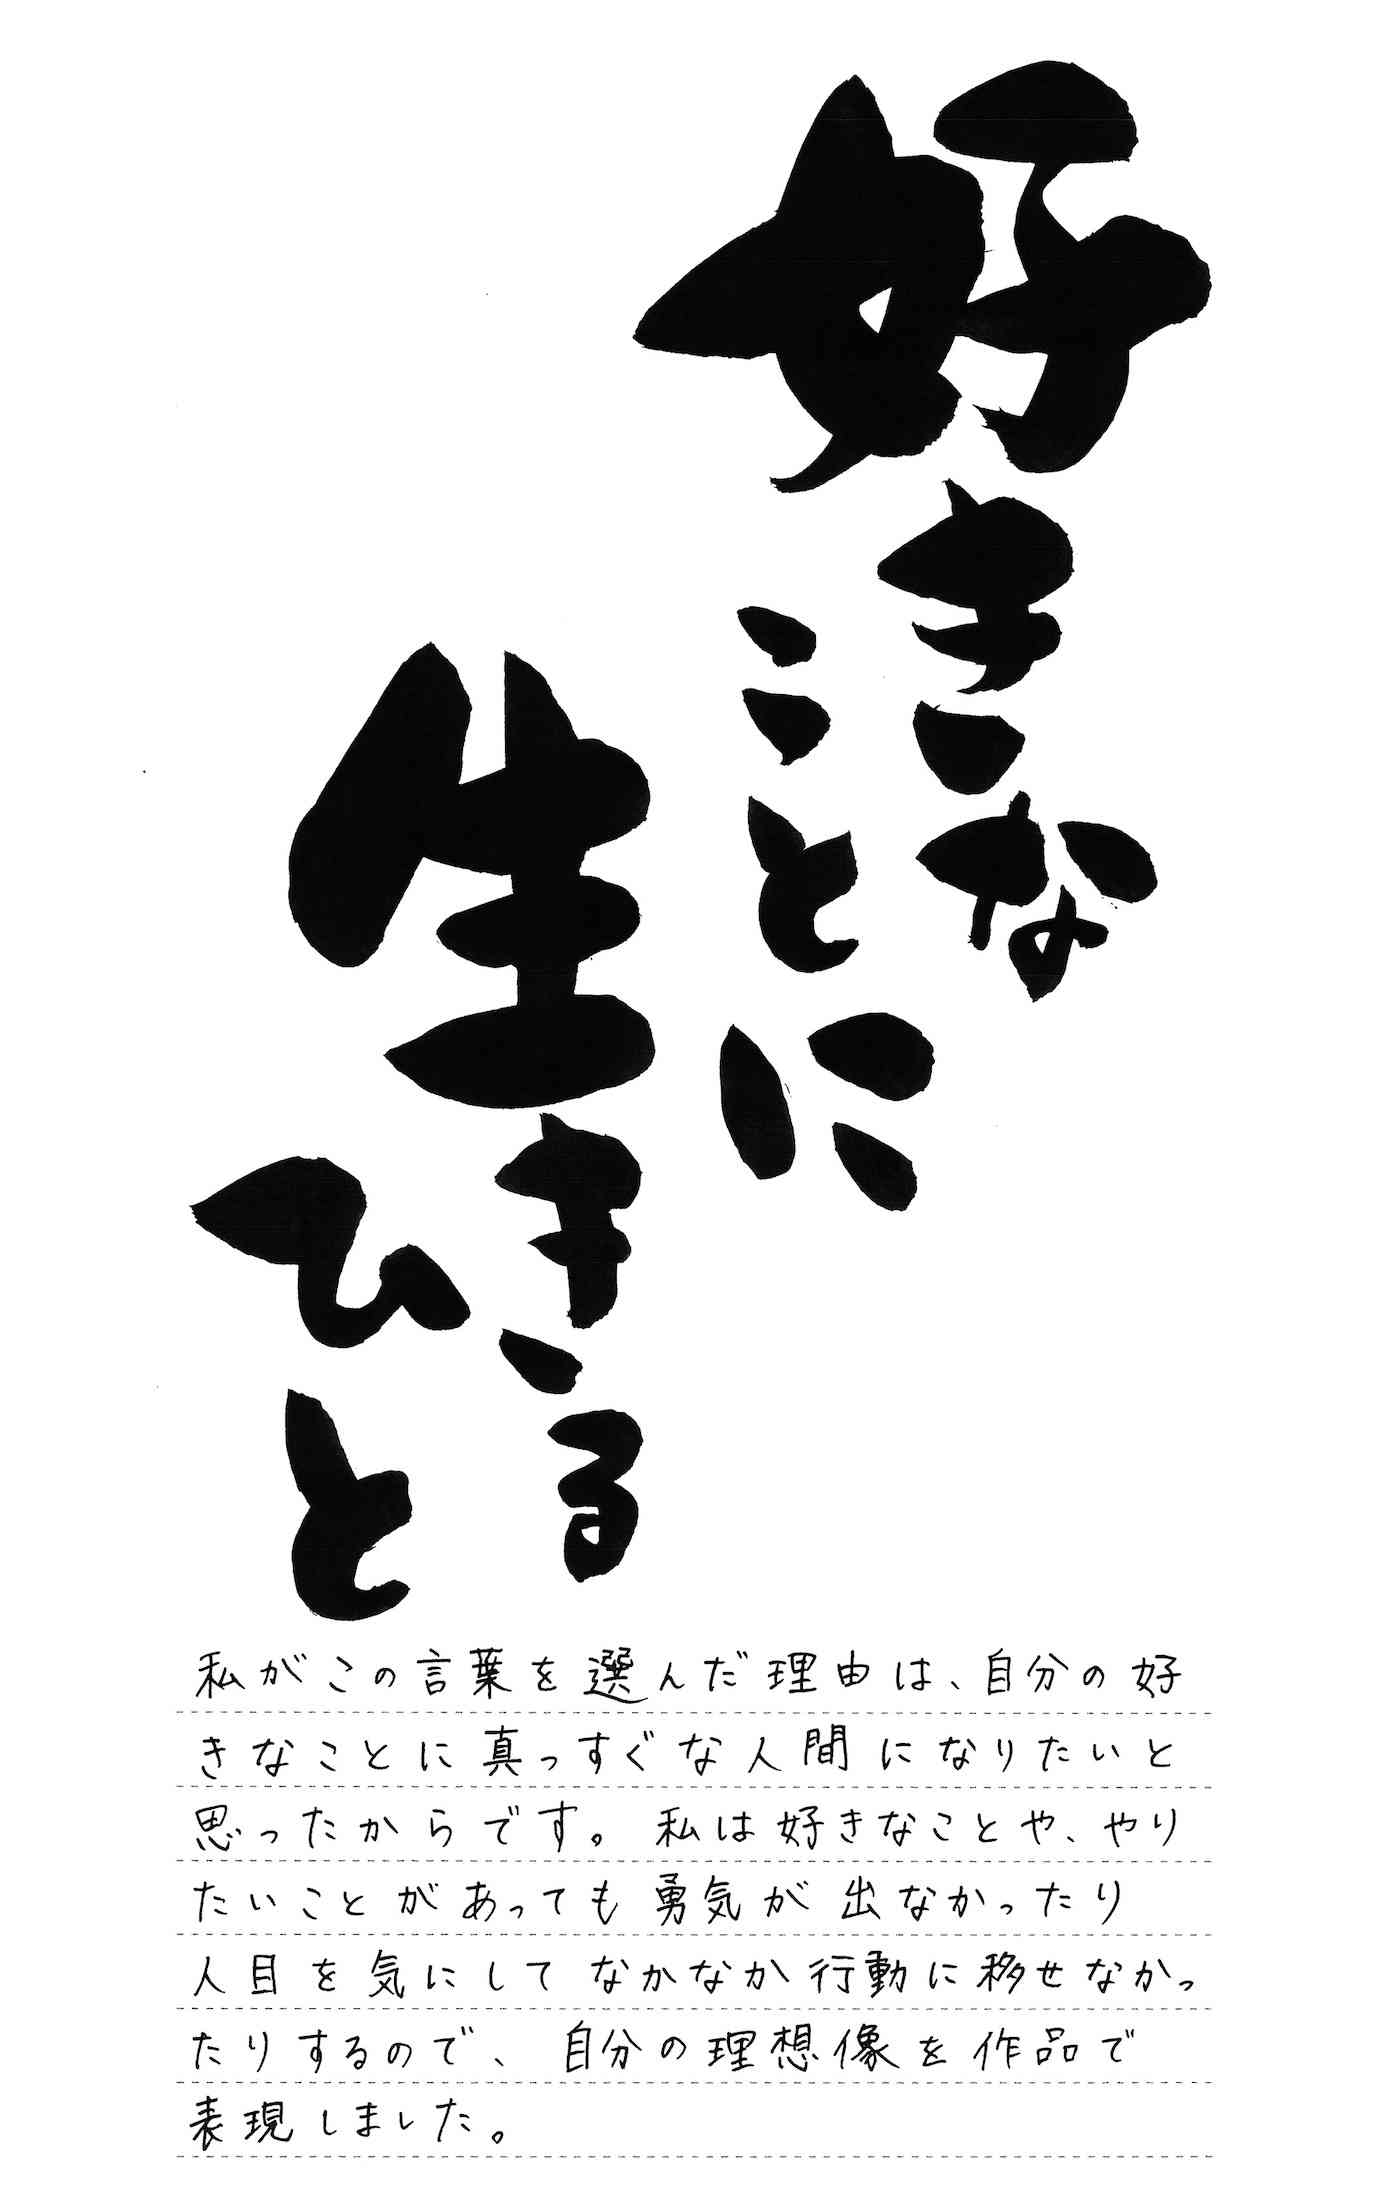 好きな
ことに
生きる
ひと
私がこの言葉を選んだ理由は、自分の好
きなことに真っすぐな人間になりたいと
思ったからです。私は好きなことや、やり
たいことがあっても勇気が出なかったり
人目を気にしてなかなか行動に移せなかっ
たりするので、自分の理想像を作品で
表現しました。